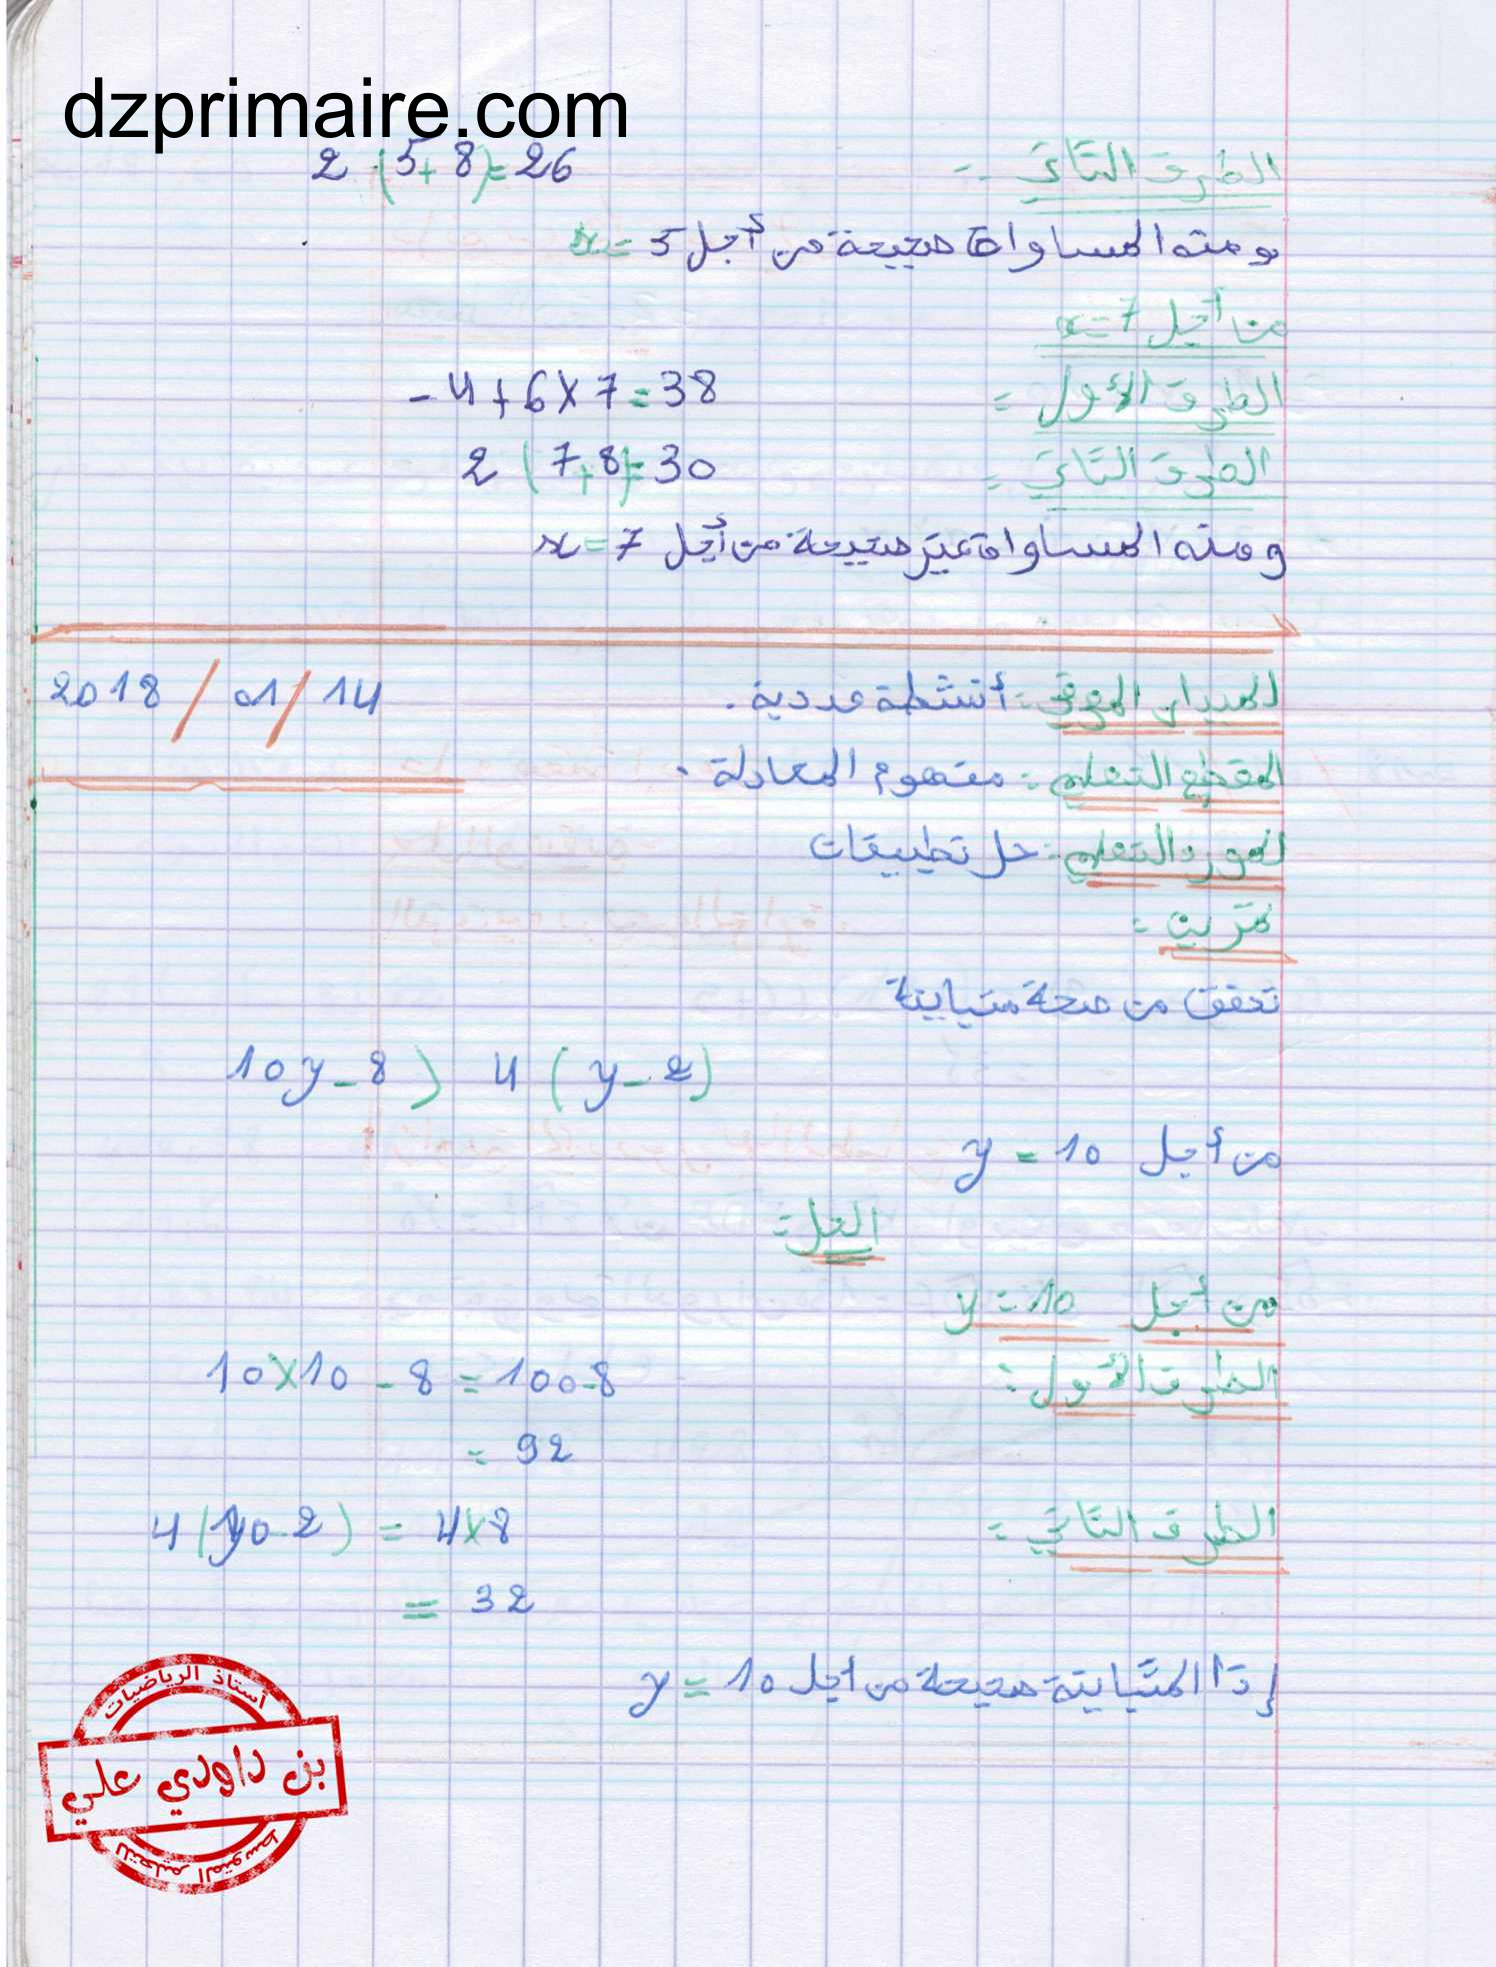 dzprimaire.com
الطرف الثاني :- 2 (5+8)=26
ومنه المساواة صحيحة من أجل x=5
من أجل x=7
الطرف الأول : -4+6×7=38
الطرف الثاني : 2 (7+8)=30
ومنه المساواة غير صحيحة من أجل x=7
الميدان المعرفي : أنشطة عددية . 2018 / 01 / 14
المقطع التعلمي : مفهوم المعادلة .
المورد التعلمي : حل تطبيقات
تمرين :
تحقق من صحة متباينة
10y-8 > 4 (y-2)
من أجل y=10
الحل :
من أجل y=10
الطرف الأول : 10×10-8=100-8
= 92
الطرف الثاني : 4(10-2) = 4×8
= 32
إذا المتباينة صحيحة من أجل y=10
أستاذ الرياضيات
بن داودي علي
للتعليم المتوسط